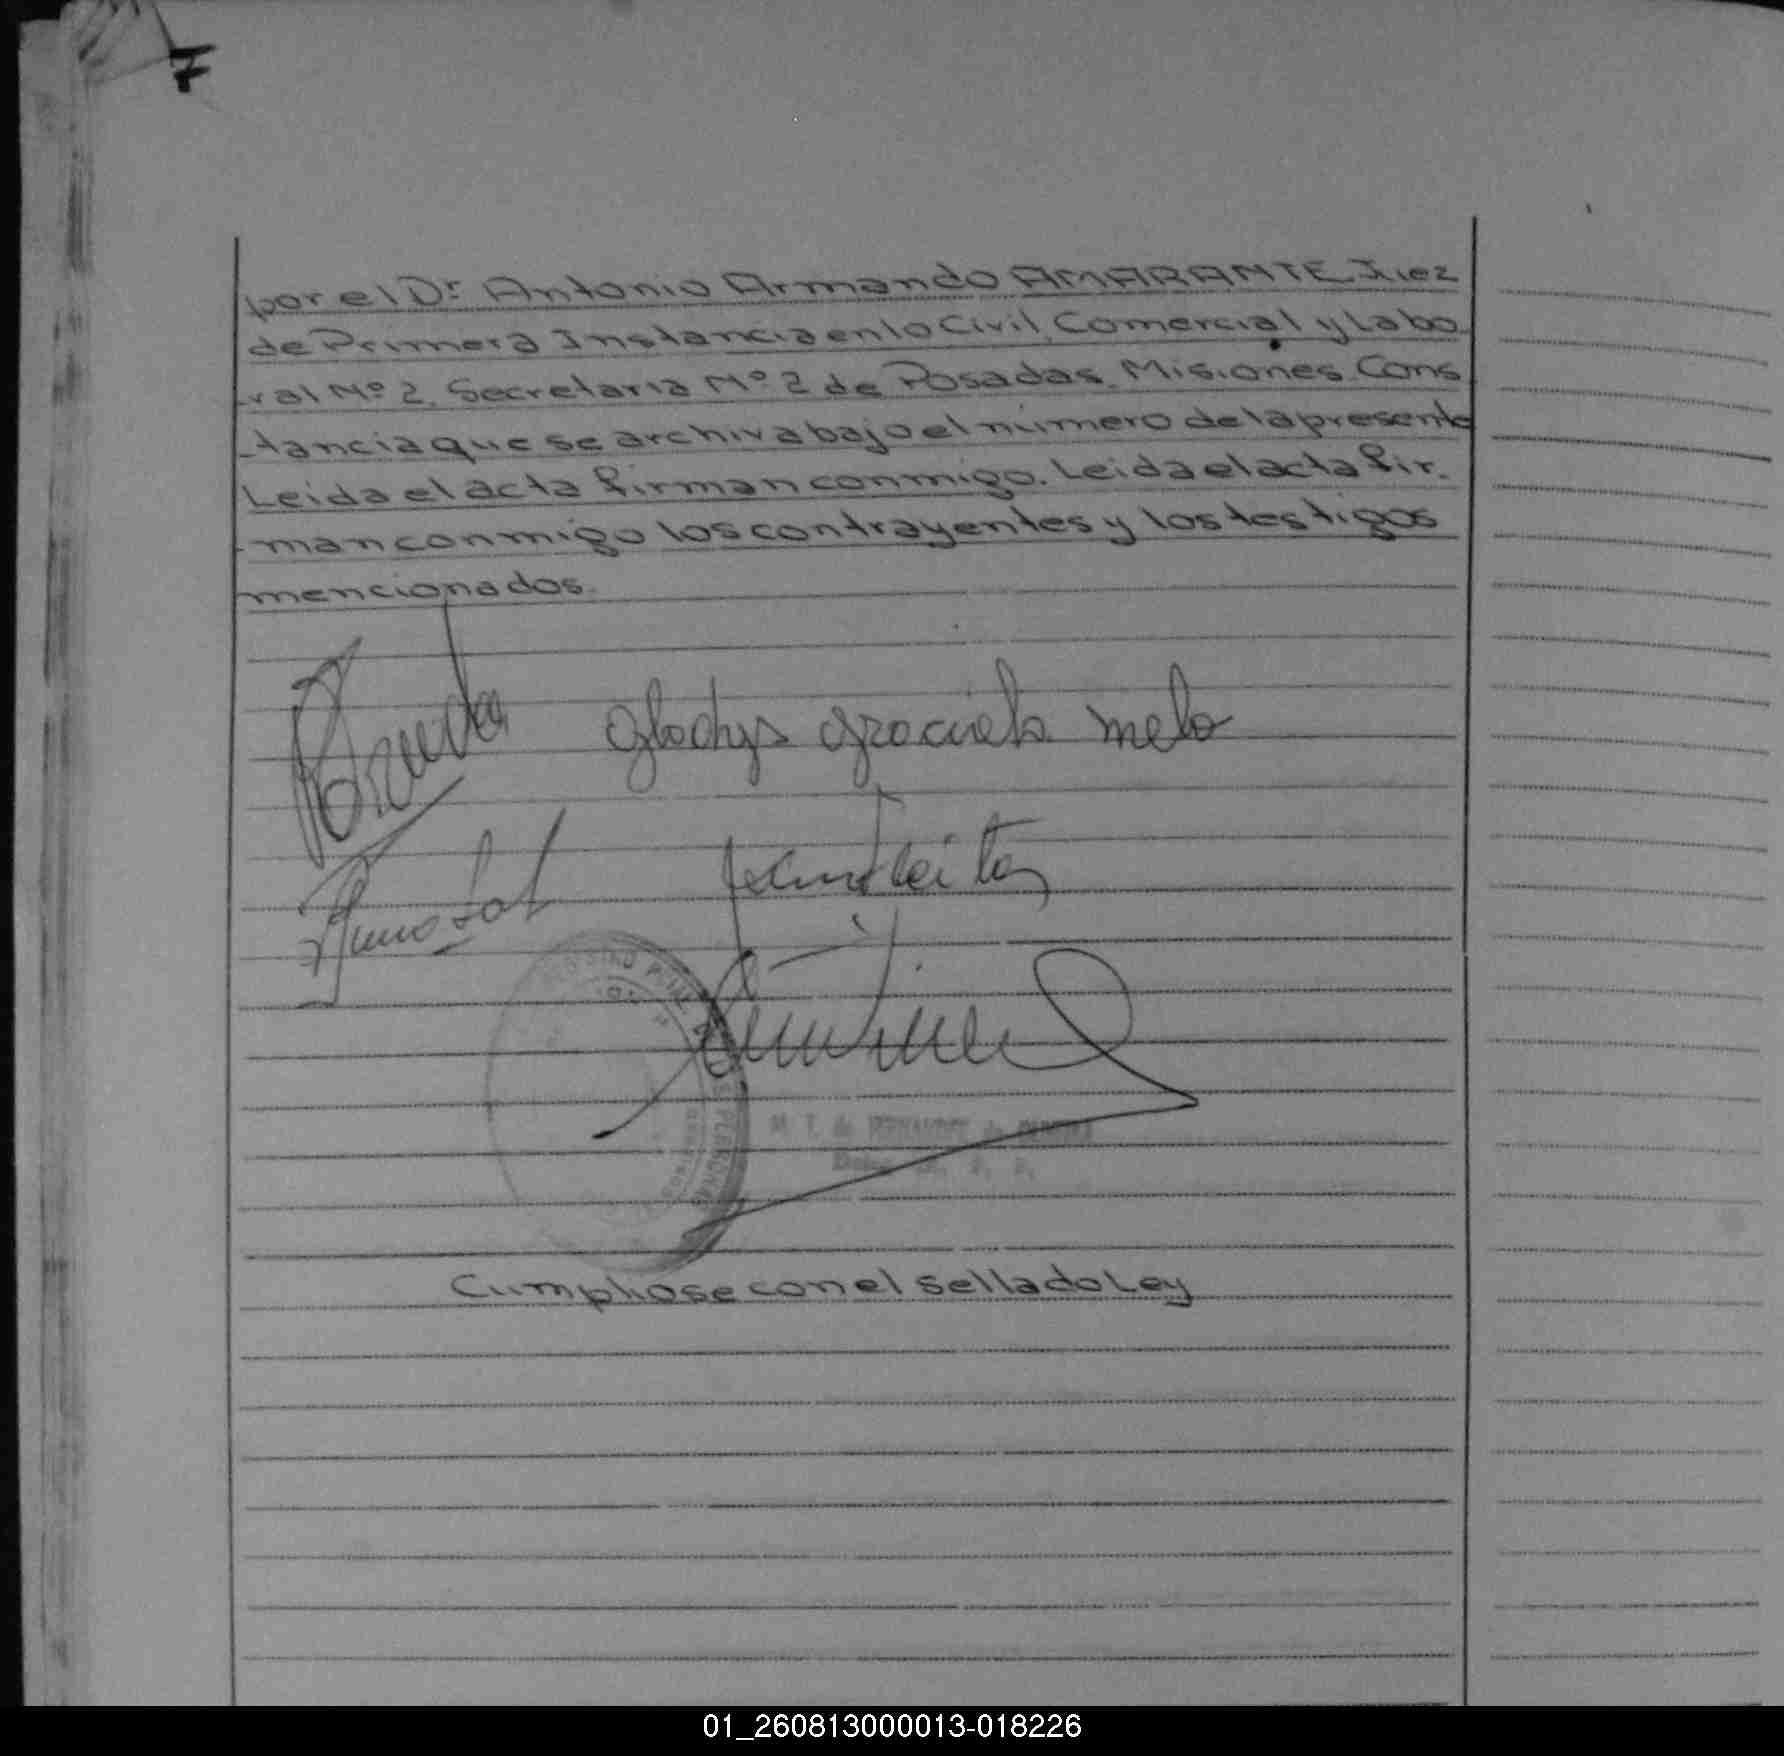 7
por el Dr. Antonio Armando AMARANTE Juez
de Primera Instancia en lo Civil, Comercial y Labo
ral Nº 2, Secretaria Nº 2 de Posadas, Misiones. Cons
tancia que se archiva bajo el número de la presente
Leida el acta firman conmigo. Leida el acta fir-
man conmigo los contrayentes y los testigos
mencionados.
gladys graciela melo
Cumpliose con el sellado Ley
01_260813000013-018226